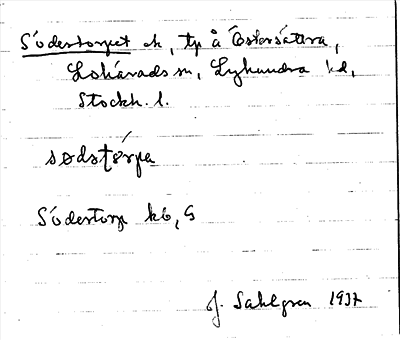 Södertorpet ok, tp å Östersättra,
Lohärads sn, Lyhundra hd,
Stockh. l.
sødstørpa
Södertorp kb, G
J. Sahlgren 1937